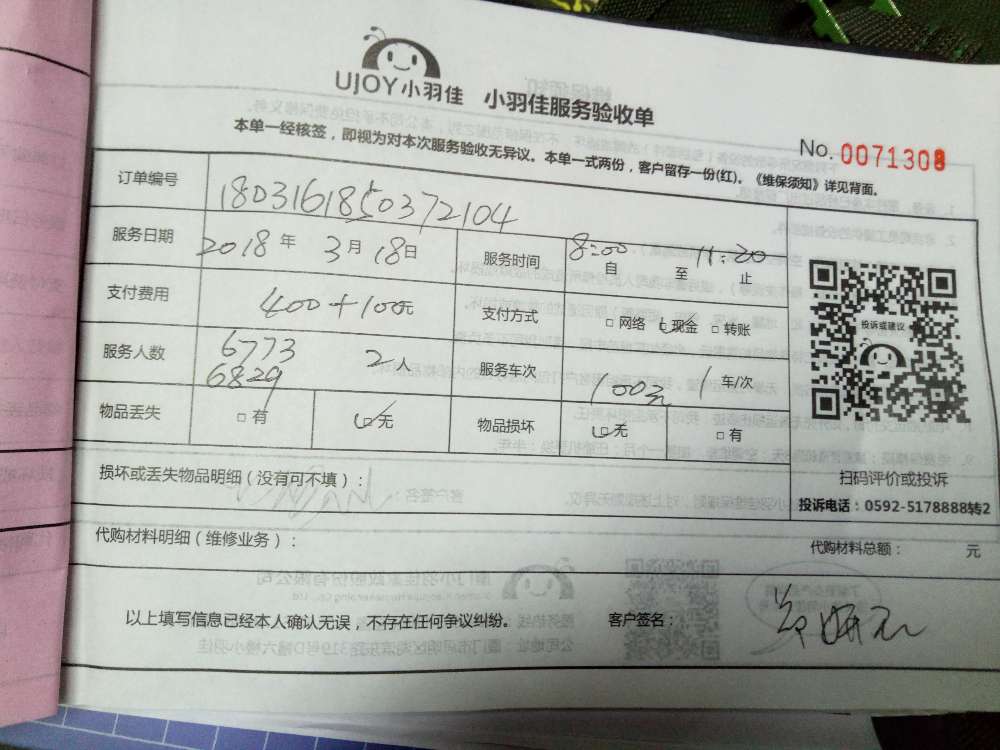 UJOY小羽佳 小羽佳服务验收单
本单一经核签，即视为对本次服务验收无异议。本单一式两份，客户留存一份(红)。《维保须知》详见背面。
No. 0071308
订单编号 1803161850372104
服务日期 2018 年 3 月 18 日 服务时间 8:00 自 至 11:20 止
支付费用 400+100元 支付方式 □ 网络 □ 现金 □ 转账
服务人数 6773 6829 2 人 服务车次 100元 1 车/次
物品丢失 □ 有 □ 无 物品损坏 □ 无 □ 有
投诉或建议
扫码评价或投诉
投诉电话：0592-5178888转2
损坏或丢失物品明细（没有可不填）：
代购材料明细（维修业务）： 代购材料总额： 元
以上填写信息已经本人确认无误，不存在任何争议纠纷。 客户签名：